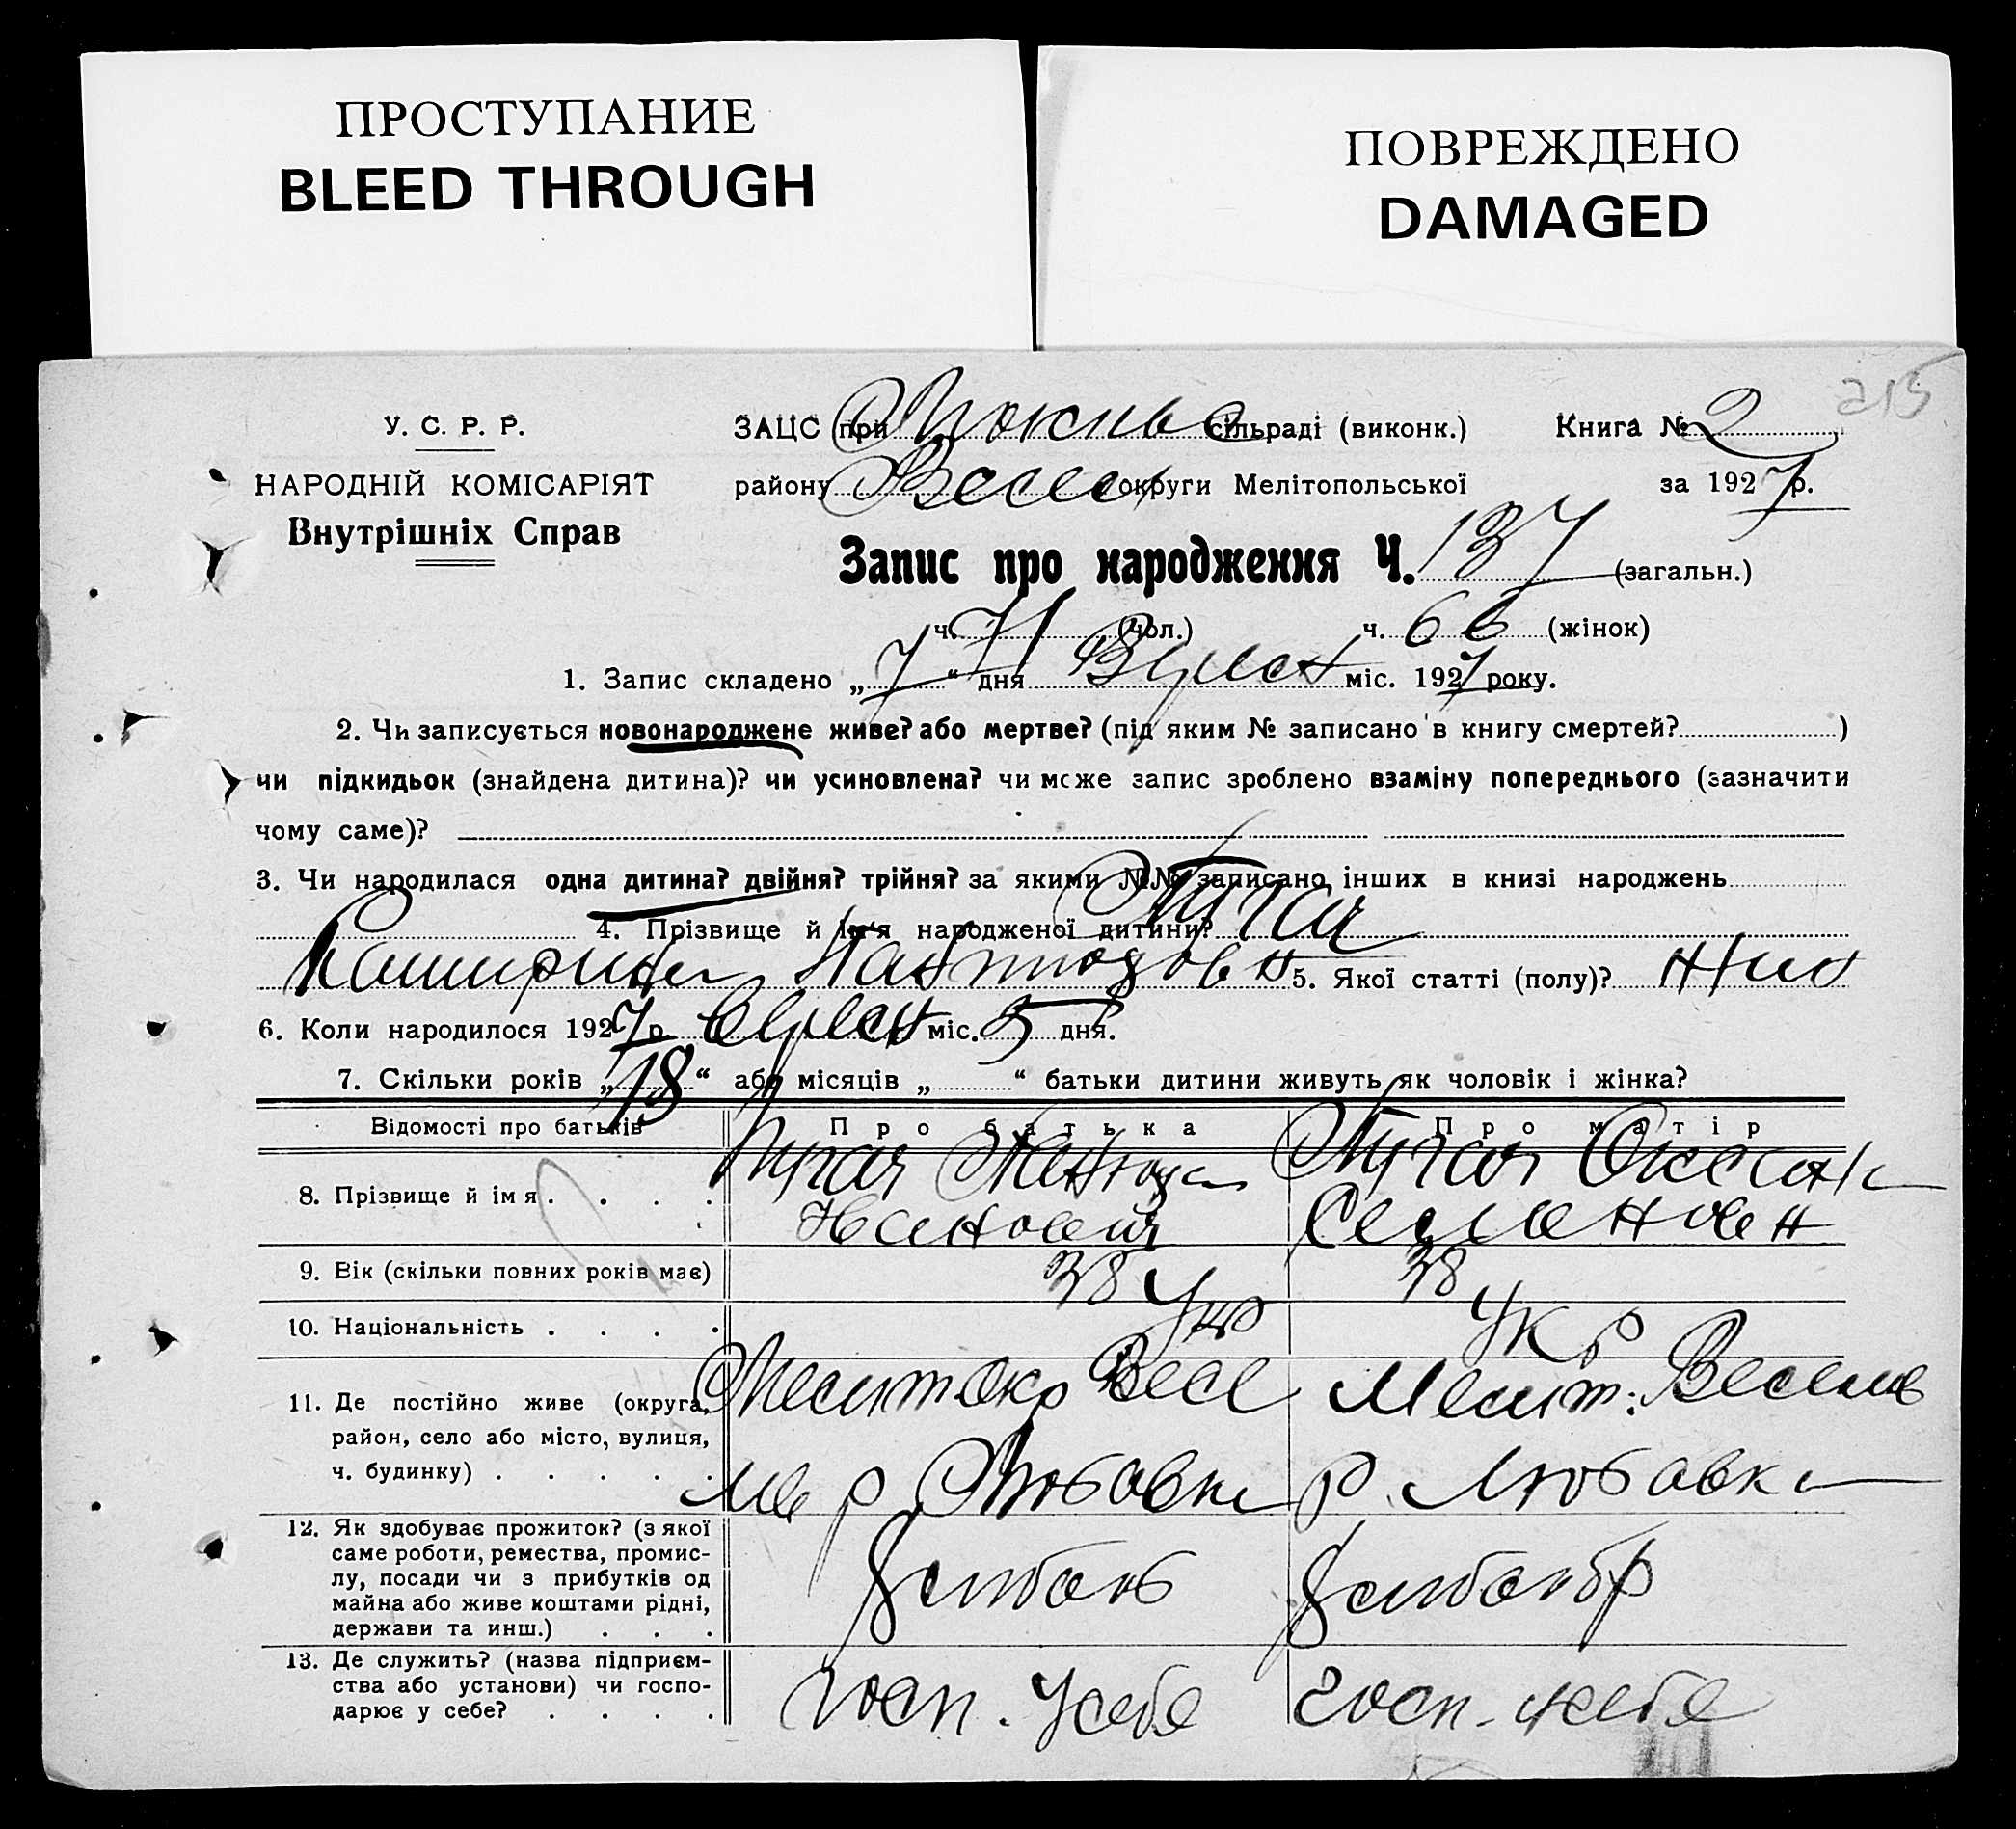 ПРОСТУПАНИЕ
BLEED THROUGH
ПОВРЕЖДЕНО
DAMAGED
215
У. С. Р. Р.
НАРОДНІЙ КОМІСАРІЯТ
Внутрішніх Справ
ЗАЦС при сільраді (виконк.) Книга № 2
району Весел округи Мелітопольської за 1927 р.
Запис про народження Ч. 137 (загальн.)
ч. 71 (чол.) ч. 66 (жінок)
1. Запис складено „7“ дня Вересн міс. 1927 року.
2. Чи записується новонароджене живе? або мертве? (під яким № записано в книгу смертей? )
чи підкидьок (знайдена дитина)? чи усиновлена? чи може запис зроблено взаміну попереднього (зазначити
чому саме)?
3. Чи народилася одна дитина? двійня? трійня? за якими №№ записано інших в книзі народжень
4. Прізвище й ім'я народженої дитини?
5. Якої статті (полу)? жін
6. Коли народилося 1927 р. Вересн міс. 5 дня.
7. Скільки років „18“ або місяців „ “ батьки дитини живуть як чоловік і жінка?
Відомості про батьків Про батька Про матір
8. Прізвище й ім я . . . . Оксана
Семеновн
9. Вік (скільки повних років має) 38 38
10. Національність . . . . Укр Укр
11. Де постійно живе (округа, Мелит окр Весе Мелит: Веселів
район, село або місто, вулиця,
ч. будинку) . . . . . лів р Любавка р. Любавка
12. Як здобуває прожиток? (з якої
саме роботи, ремества, промис-
лу, посади чи з прибутків од
майна або живе коштами рідні,
держави та инш.) . . .
13. Де служить? (назва підприєм-
ства або установи) чи госпо-
дарює у себе? . . . . госп. у себе госп. у себе